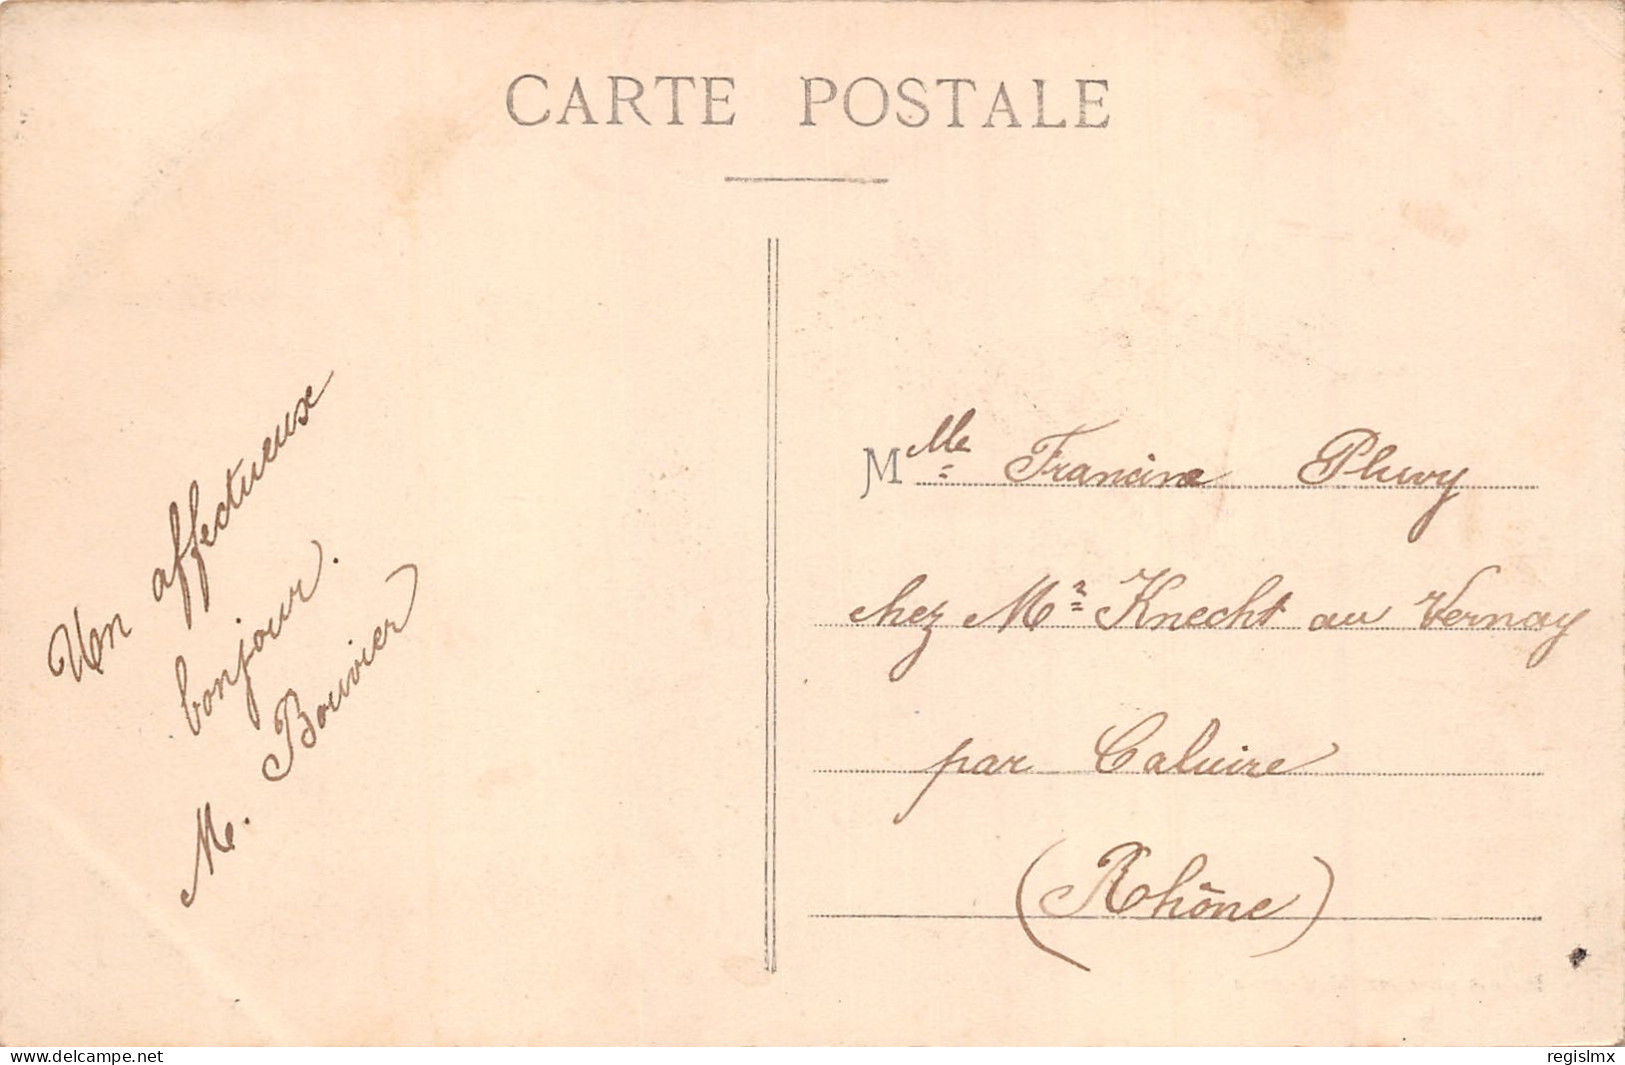 CARTE POSTALE
Un affectueux
bonjour.
M. Bouvier
M Mlle Francine Pluvy
chez Mr Knecht au Vernay
par Caluire
(Rhône)
www.delcampe.net
regislmx